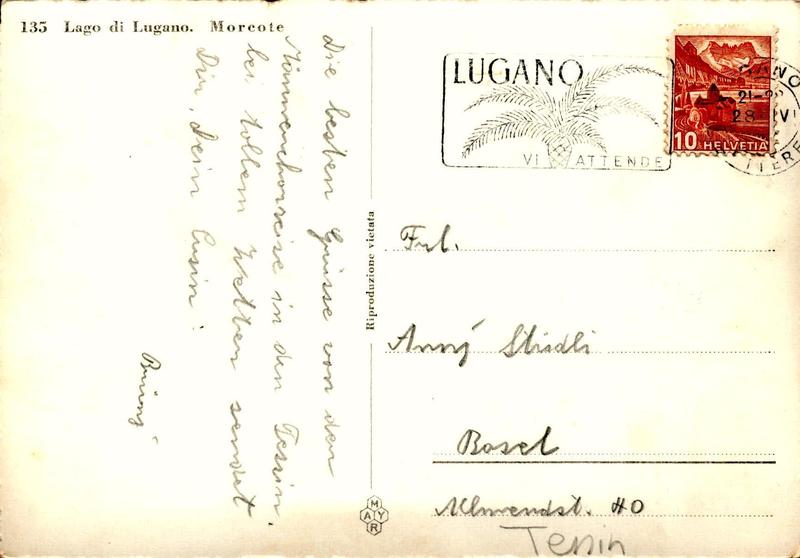 135 Lago di Lugano. Morcote
Die besten Grüsse von der
Männerchorreise in den Tessin
bei tollem Wetter sendet
Dir, Dein Cusin:
LUGANO
VI ATTENDE
10 HELVETIA
21-22
28 IV
Riproduzione vietata
Frl.
Anny Stidli
Basel
Allmendst. 40
Tessin
MAYR